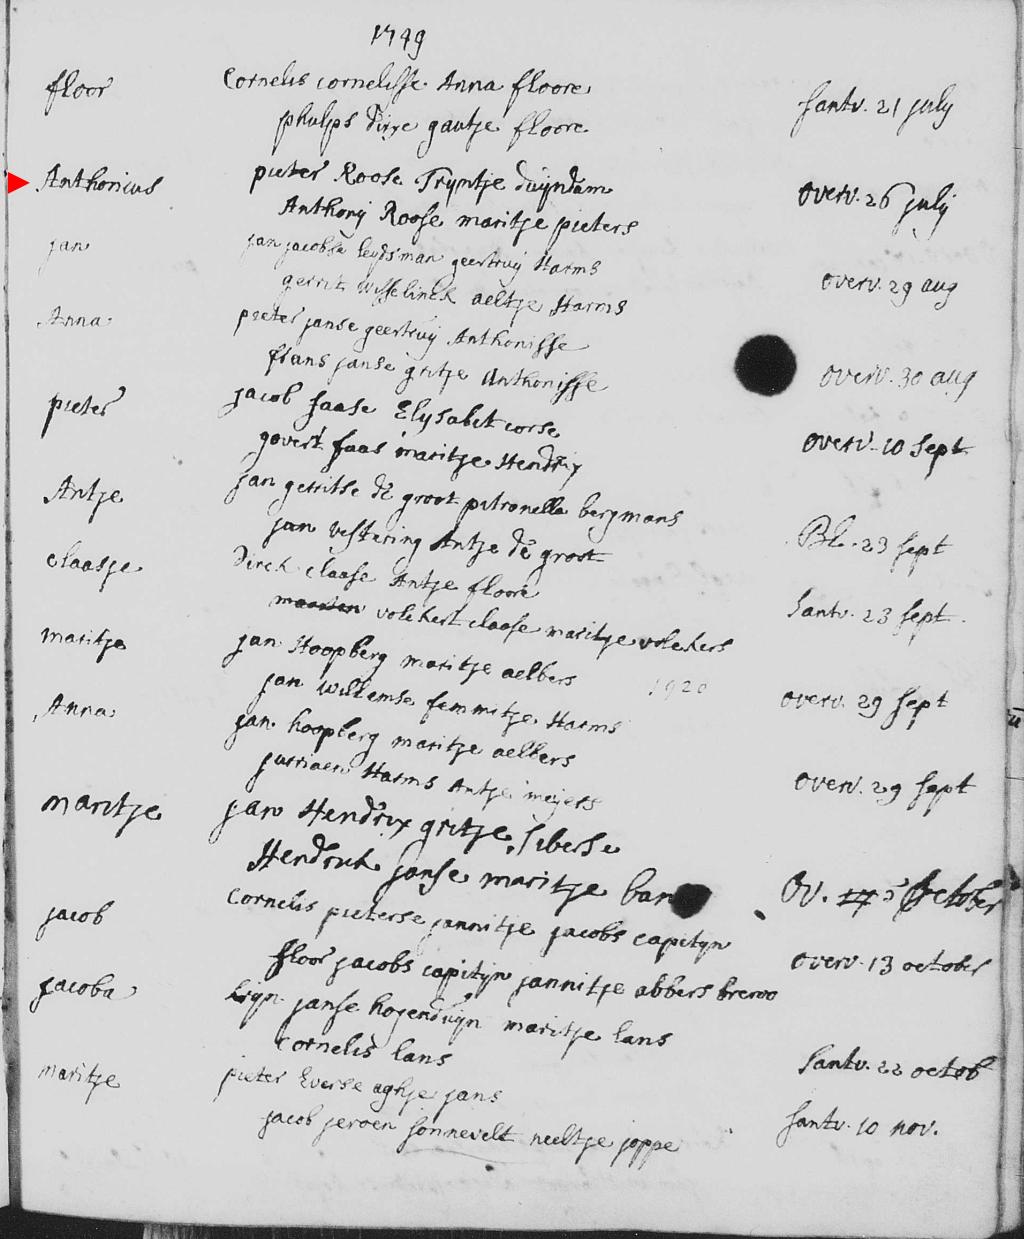 1749
floor Cornelis cornelisse Anna floore
phulps dirxe gautje floore Santv. 21 july
Anthonius pieter Roose Tryntje duijndam
Anthonij Roose maritje pieters overv. 26 julij
jan jan jacobse leydsman geertruij Harms
gerrit wisselinck aeltje Harms overv. 29 aug
Anna pieter janse geertruij Anthonisse
frans janse gritje Anthonisse overv. 30 aug
pieter jacob faase Elysabet corse
govert faas maritje Hendrix overv. 10 Sept
Antje jan gerritse de groot petronella bergmans
jan vestering Antje de groot Bl. 23 sept
claasje Dirck claase Antje floore
maarten volckert claase maritje volckers Santv. 23 sept
maritje jan Hoopberg maritje aelbers
jan willemse femmitje Harms 1920 overv. 29 sept
Anna jan hoopberg maritje aelbers
jurriaen Harms Antje meijers overv. 29 sept
maritje jan Hendrix gritje siberse
Hendrick janse maritje ban Ov. 17 5 October
jacob cornelis pieterse jannitje jacobs capityn
floor jacobs capitijn jannitje abbers breroo overv. 13 october
jacoba krijn janse hogenduijn maritje lans
cornelis lans Santv. 22 octob
maritje pieter Everse aghje jans
jacob jeroen sonnevelt neeltje joppe Santv. 10 nov.